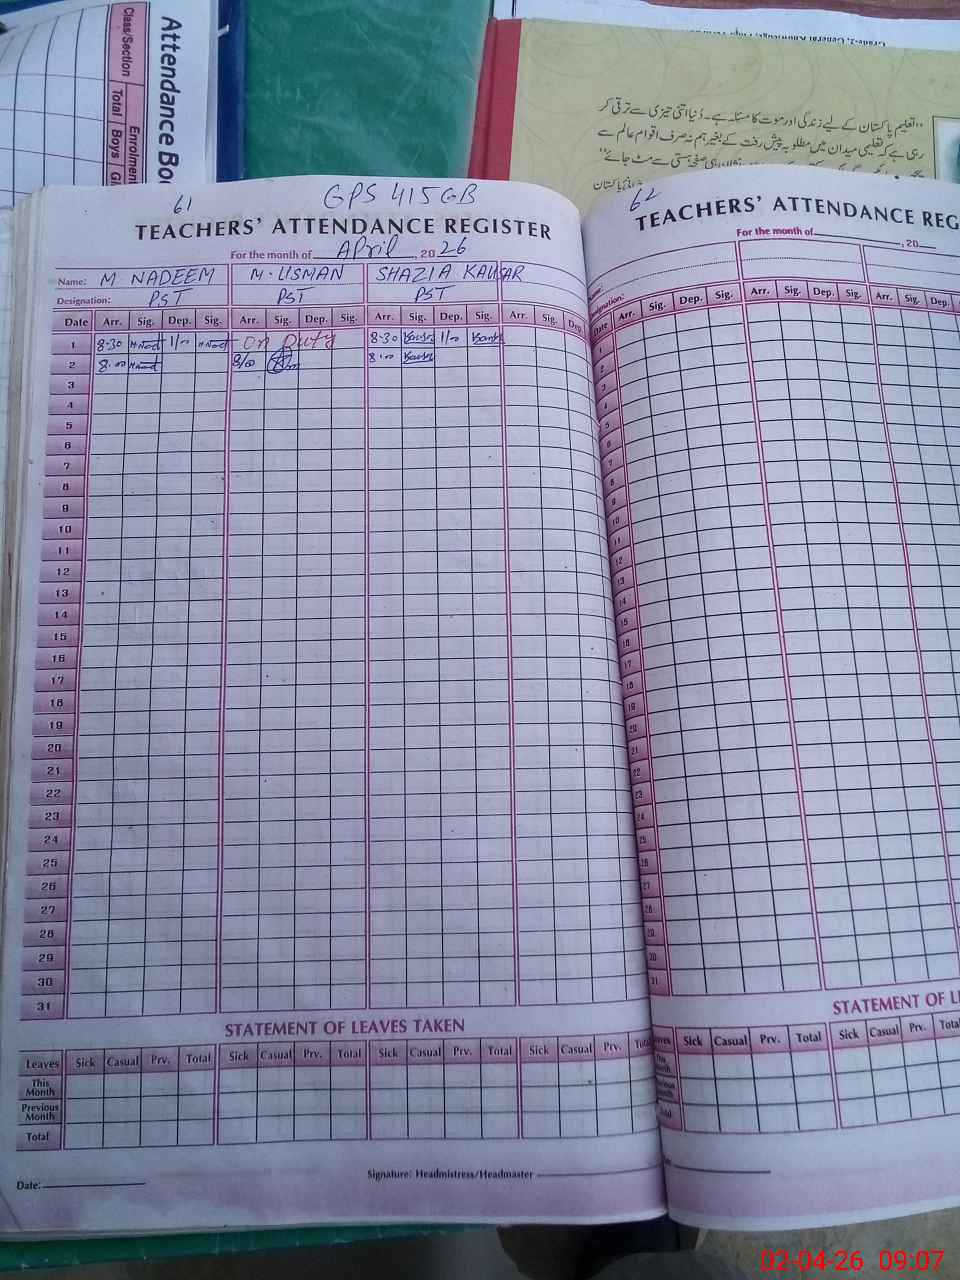 Attendance Boo
Class/Section
Enrolment
Total
Boys
"تعلیم پاکستان کے لیے زندگی اور موت کا مسئلہ ہے۔ دُنیا اتنی تیزی سے ترقی کر
رہی ہے کہ تعلیمی میدان میں مطلوبہ پیش رفت کے بغیر ہم نہ صرف اقوامِ عالم سے
61
GPS 415GB
TEACHERS' ATTENDANCE REGISTER
For the month of April, 2026
Name: M NADEEM M. USMAN SHAZIA KAUSAR
Designation: PST PST PST
Date Arr. Sig. Dep. Sig. Arr. Sig. Dep. Sig. Arr. Sig. Dep. Sig. Arr. Sig. Dep.
1 8-30 1/00 On Duty 8-30 1/00
2 8.00 8/00 8.00
3
4
5
6
7
8
9
10
11
12
13
14
15
16
17
18
19
20
21
22
23
24
25
26
27
28
29
30
31
STATEMENT OF LEAVES TAKEN
Leaves Sick Casual Prv. Total Sick Casual Prv. Total Sick Casual Prv. Total Sick Casual Prv. Total
This Month
Previous Month
Total
Date:
Signature: Headmistress/Headmaster
62
TEACHERS' ATTENDANCE REG
For the month of , 20
Date Arr. Sig. Dep. Sig. Arr. Sig. Dep. Sig. Arr. Sig. Dep.
1
2
3
4
5
6
7
8
9
10
11
12
13
14
15
16
17
18
19
20
21
22
23
24
25
26
27
28
29
30
31
STATEMENT OF LE
Sick Casual Prv. Total Sick Casual Prv. Total
02-04-26 09:07